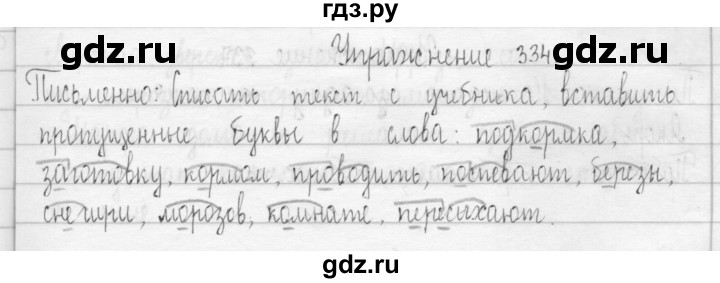 гдз.ру
gdz.ru gdz.ru
Упражнение 334
Письменно: Списать текст с учебника, вставить
пропущенные буквы в слова: подкормка,
заготовку, кормом, проводить, поспевают, березы,
снегири, морозов, комнате, пересыхают.
gdz.ru gdz.ru